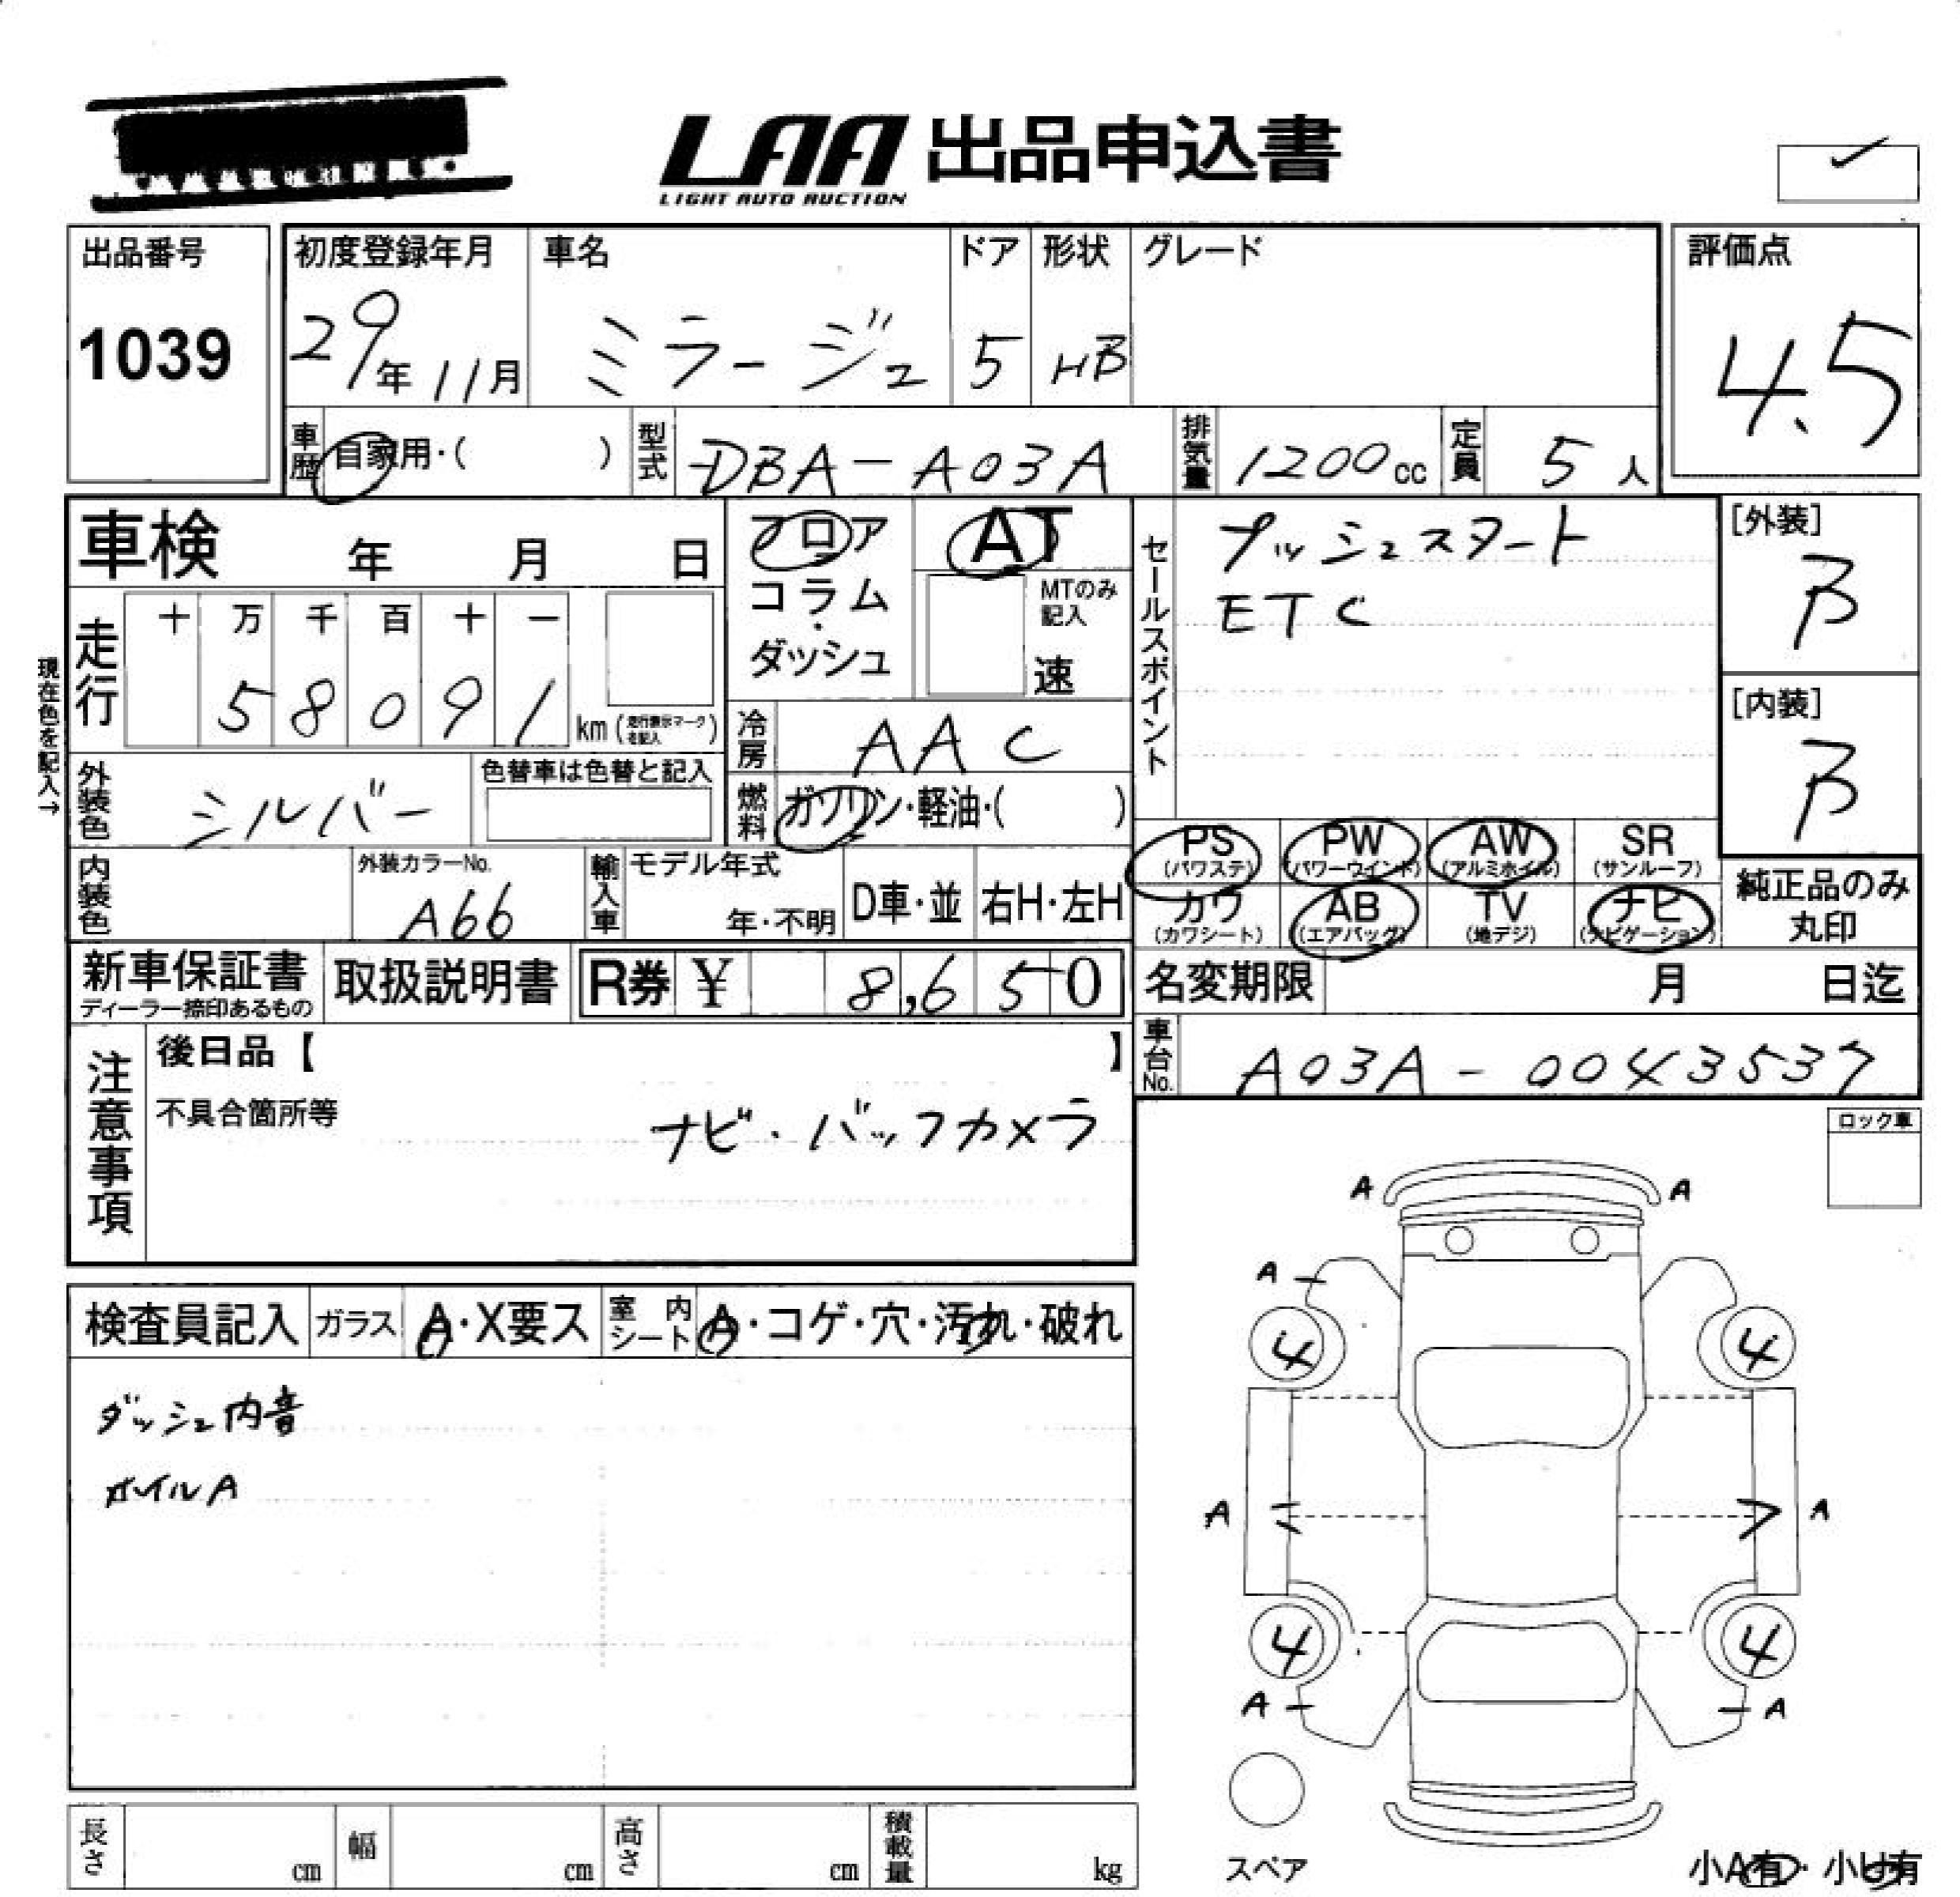 LAA 出品申込書
LIGHT AUTO AUCTION
出品番号
1039
初度登録年月
29年11月
車名
ミラージュ
ドア
5
形状
HB
グレード
評価点
4.5
車歴
自家用・( )
型式
DBA-A03A
排気量
1200cc
定員
5人
車検 年 月 日
フロア
コラム
・
ダッシュ
AT
MTのみ
記入
速
セールスポイント
プッシュスタート
ETC
[外装]
B
[内装]
B
現在色を記入→
走行
十 万 千 百 十 一
5 8 0 9 1 km (走行表示マークを記入)
冷房
AAC
外装色
シルバー
色替車は色替と記入
燃料
ガソリン・軽油・( )
PS (パワステ)
PW (パワーウインド)
AW (アルミホイル)
SR (サンルーフ)
カワ (カワシート)
AB (エアバッグ)
TV (地デジ)
ナビ (ナビゲーション)
純正品のみ
丸印
内装色
外装カラーNo.
A66
輸入車
モデル年式
年・不明
D車・並
右H・左H
新車保証書
ディーラー捺印あるもの
取扱説明書
R券 ¥ 8,650
名変期限 月 日迄
車台No.
A03A-0043537
注意事項
後日品【 】
不具合箇所等
ナビ・バックカメラ
ロック車
検査員記入
ガラス
A・X要ス
室内シート
A・コゲ・穴・汚れ・破れ
ダッシュ内音
ホイルA
A A
A
4 4
A A
4 4
A A
スペア
小A有・小U有
長さ cm
幅 cm
高さ cm
積載量 kg